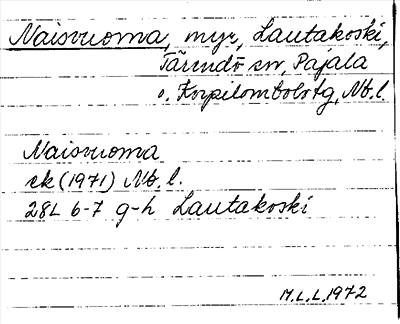 Naisvuoma, myr, Lautakoski,
Tärendö sn, Pajala
o. Korpilombolo tg, Nb. l.
Naisvuoma
ek (1971) Nb. l.
28L 6-7 g-h Lautakoski
M.L.L. 1972